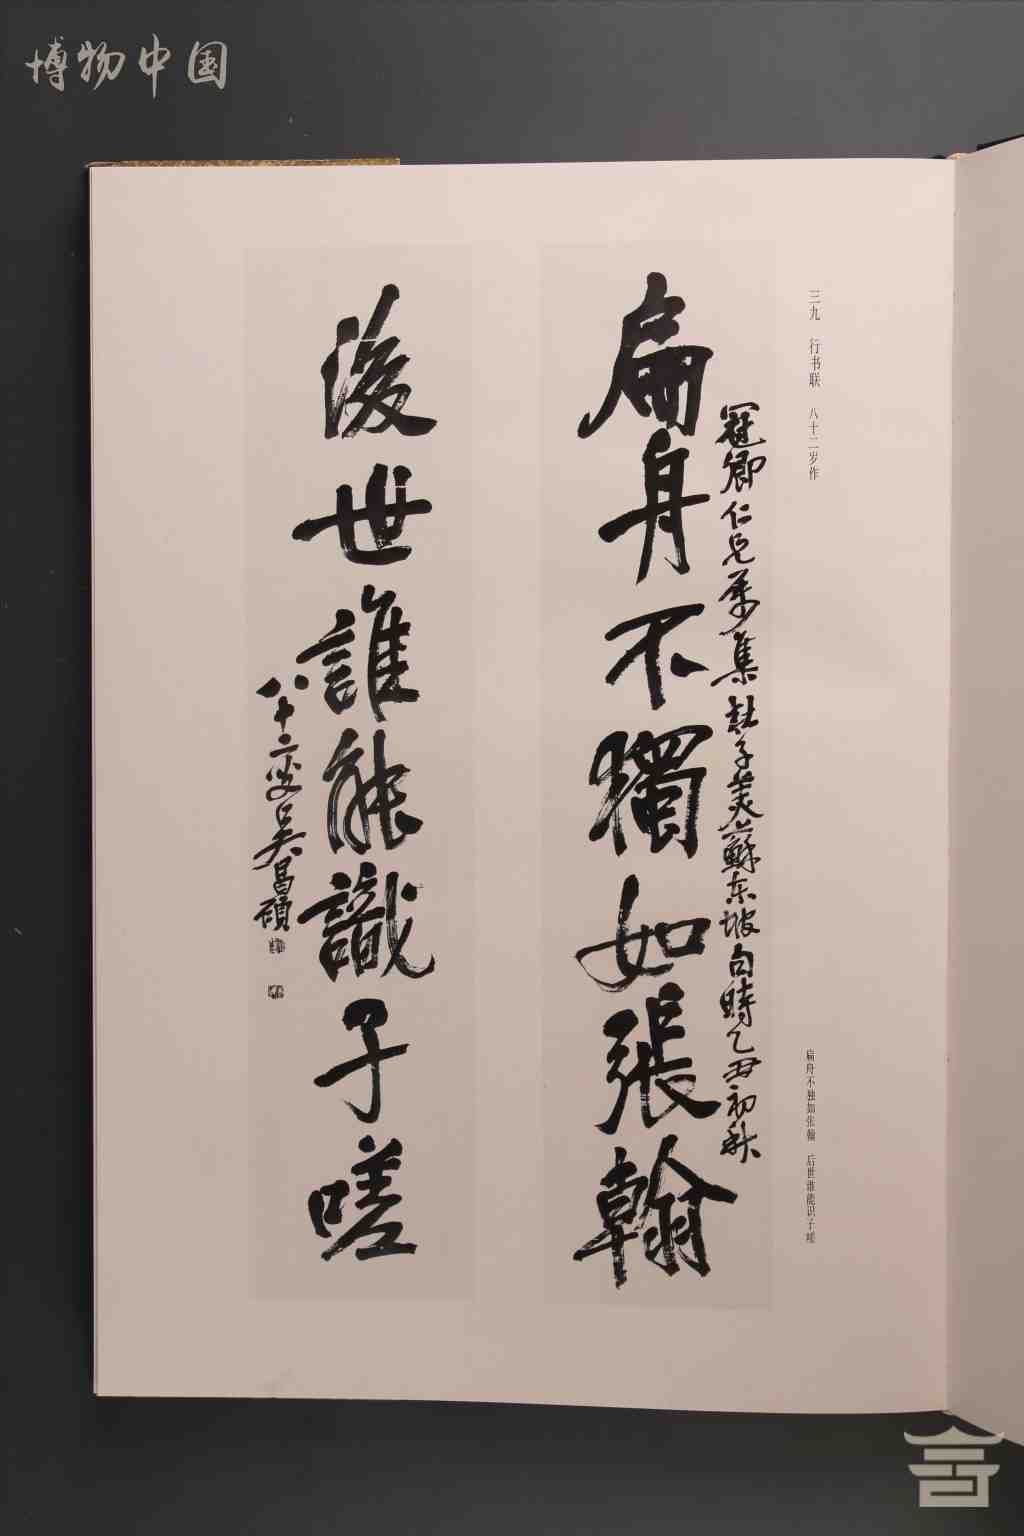 博物中国
三九 行书联 八十二岁作
扁舟不独如张翰 后世谁能识子嗟
冠卿仁兄属集杜子美蘇东坡句時乙丑初秋
扁舟不獨如張翰
後世誰能識子嗟
八十二叟吴昌碩